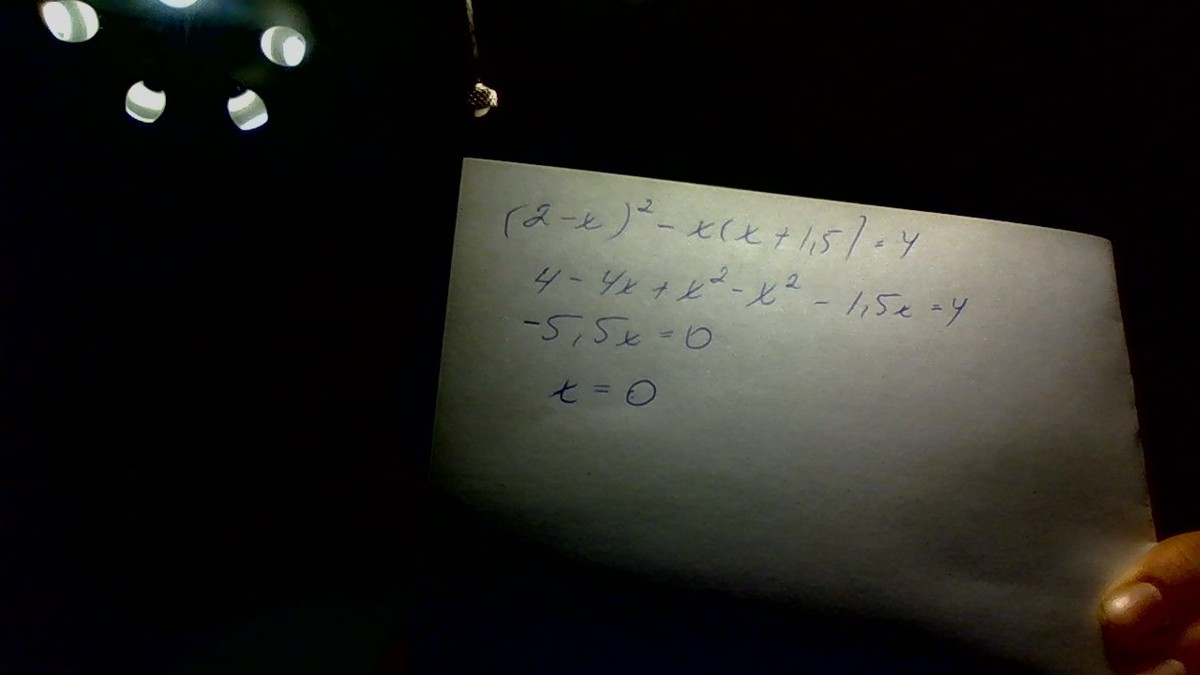 (2-x)² - x(x+1,5) = 4
4 - 4x + x² - x² - 1,5x = 4
-5,5x = 0
x = 0